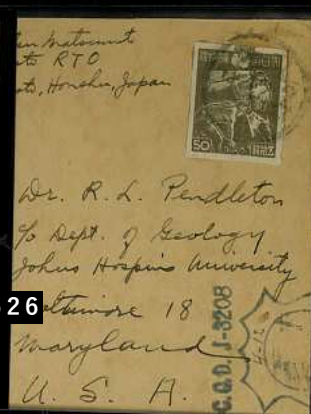 RTO
Honshu, Japan
50
Dr. R. L. Pendleton
c/o Dept. of Geology
Johns Hopins University
26
Baltimore 18
Maryland
U. S. A.
C.C.D. J-3208